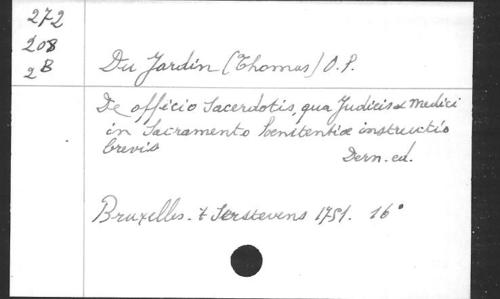 272
208
2B
Du Jardin (Thomas) O.P.
De officio Sacerdotis, qua Judicis & Medici
in Sacramento Penitentiæ instructio
brevis
Dern. ed.
Bruxelles. t Serstevens 1751. 16°